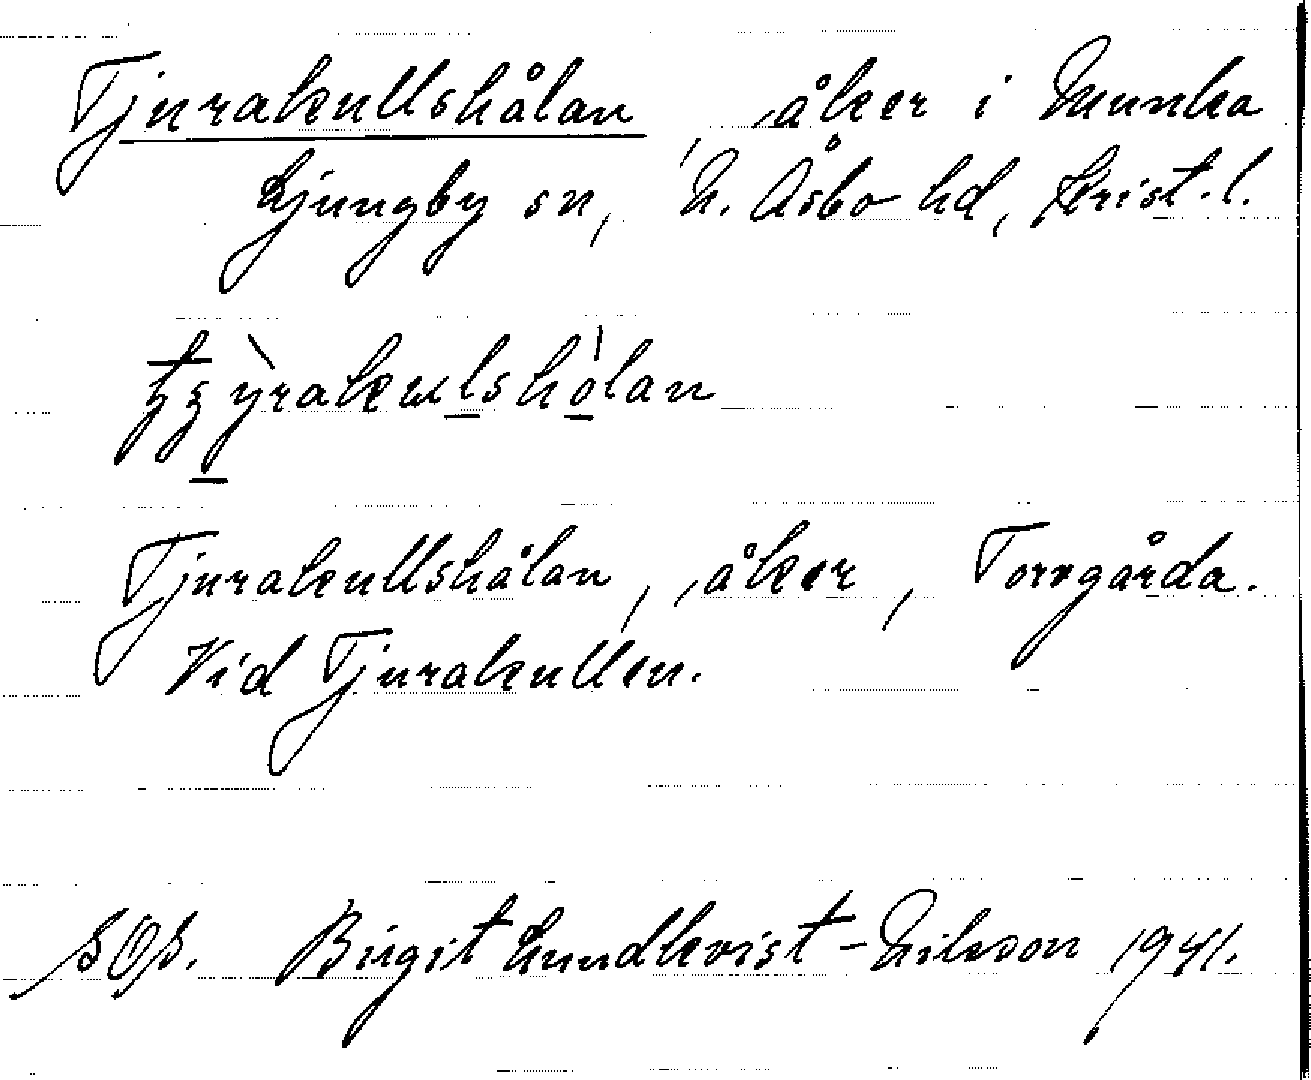 Tjurakullshålan, åker i Munka
Ljungby sn, N. Åsbo hd, Krist. l.
Tjurakullshålan, åker, Torrgårda.
Vid Tjurakullen.
SOS. Birgit Lundkvist-Nilsson 1941.